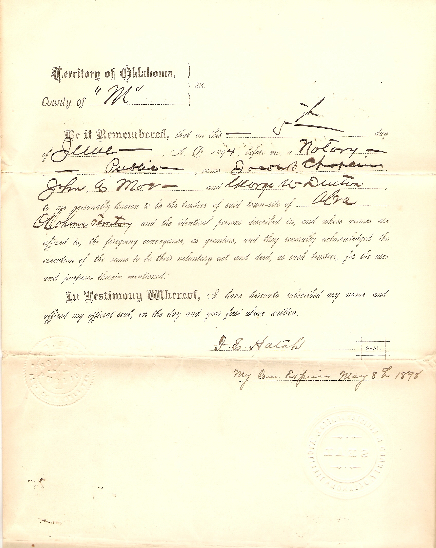 Territory of Oklahoma,
County of "M" ss
Be it Remembered, that on this day
of June A. D. 1894, before me a Notary
Public, came Chapin
John C Mor and George W Denton
to me personally known to be the of and Alva
Oklahoma Territory and the identical persons described in, and whose names are
affixed to the foregoing conveyance as grantors, and they severally acknowledged the
execution of the same to be their voluntary act and deed, as such for the uses
and purposes therein mentioned.
In Testimony Whereof, I have hereunto subscribed my name and
affixed my official seal, on the day and year last above written.
H. E. Hatch
My Com Expires May 8th 1898